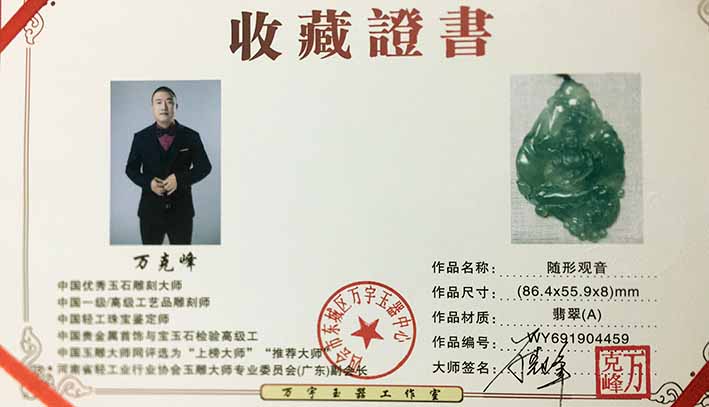 收藏證書
万克峰
中国优秀玉石雕刻大师
中国一级/高级工艺品雕刻师
中国轻工珠宝鉴定师
中国贵金属首饰与宝玉石检验高级工
中国玉雕大师网评选为“上榜大师”“推荐大师”
河南省轻工业行业协会玉雕大师专业委员会(广东)副会长
作品名称：随形观音
作品尺寸：(86.4x55.9x8)mm
作品材质：翡翠(A)
作品编号：WY691904459
大师签名：
万克峰
四会市东城区万宇玉器中心
万宇玉器工作室